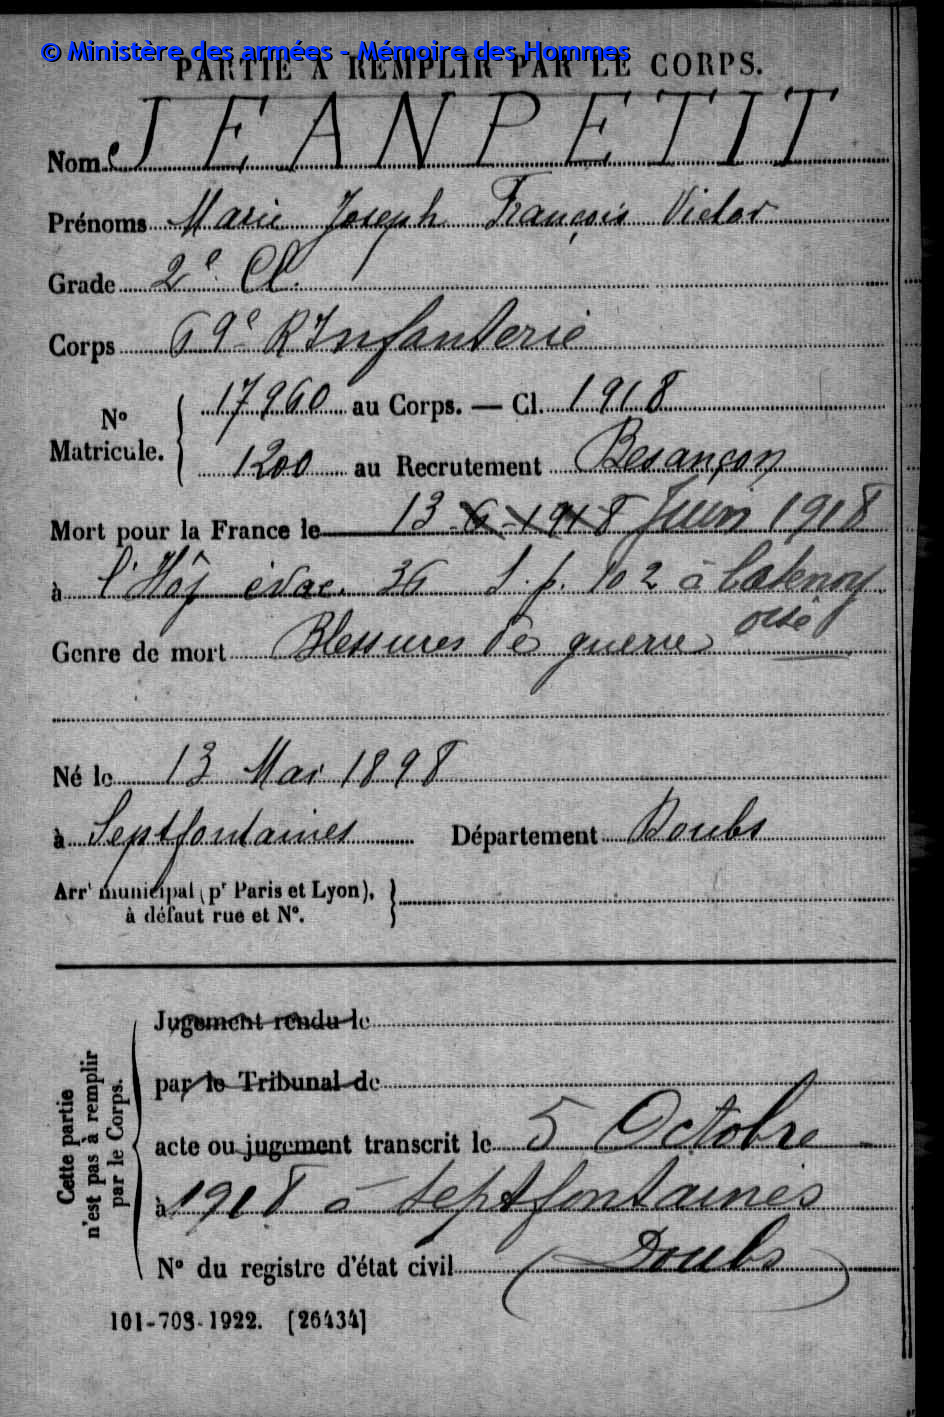 © Ministère des armées - Mémoire des Hommes
PARTIE À REMPLIR PAR LE CORPS.
Nom JEANPETIT
Prénoms Marie Joseph François Victor
Grade 2e Cl.
Corps 69e R Infanterie
No Matricule.
17960 au Corps. — Cl. 1918
1200 au Recrutement Besançon
Mort pour la France le 13 - 6 - 1918 Juin 1918
à l'Hôp évac. 36 S.p. 102 à Catenoy
oise
Genre de mort Blessures de guerre
Né le 13 Mai 1898
à Septfontaines Département Doubs
Arrt municipal (pr Paris et Lyon),
à défaut rue et No.
Cette partie
n'est pas à remplir
par le Corps.
Jugement rendu le
par le Tribunal de
acte ou jugement transcrit le 5 Octobre
à 1918 à Septfontaines
No du registre d'état civil (Doubs)
101-708-1922. [26434]